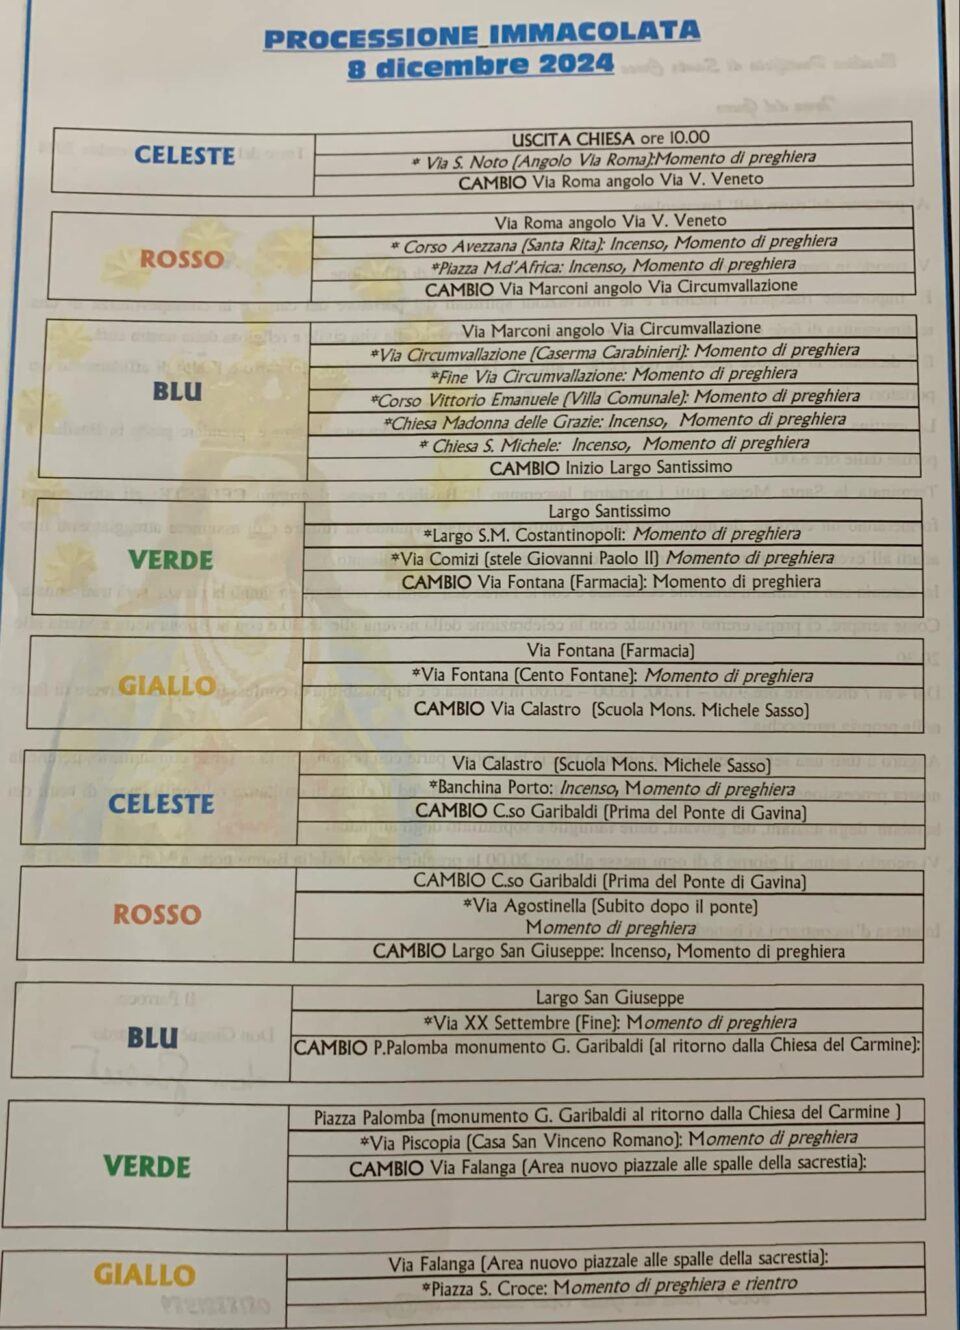 PROCESSIONE IMMACOLATA
8 dicembre 2024
CELESTE
USCITA CHIESA ore 10.00
* Via S. Noto (Angolo Via Roma):Momento di preghiera
CAMBIO Via Roma angolo Via V. Veneto
ROSSO
Via Roma angolo Via V. Veneto
* Corso Avezzana (Santa Rita): Incenso, Momento di preghiera
*Piazza M.d'Africa: Incenso, Momento di preghiera
CAMBIO Via Marconi angolo Via Circumvallazione
BLU
Via Marconi angolo Via Circumvallazione
*Via Circumvallazione (Caserma Carabinieri): Momento di preghiera
*Fine Via Circumvallazione: Momento di preghiera
*Corso Vittorio Emanuele (Villa Comunale): Momento di preghiera
*Chiesa Madonna delle Grazie: Incenso, Momento di preghiera
* Chiesa S. Michele: Incenso, Momento di preghiera
CAMBIO Inizio Largo Santissimo
VERDE
Largo Santissimo
*Largo S.M. Costantinopoli: Momento di preghiera
*Via Comizi (stele Giovanni Paolo II) Momento di preghiera
CAMBIO Via Fontana (Farmacia): Momento di preghiera
GIALLO
Via Fontana (Farmacia)
*Via Fontana (Cento Fontane): Momento di preghiera
CAMBIO Via Calastro (Scuola Mons. Michele Sasso)
CELESTE
Via Calastro (Scuola Mons. Michele Sasso)
*Banchina Porto: Incenso, Momento di preghiera
CAMBIO C.so Garibaldi (Prima del Ponte di Gavina)
ROSSO
CAMBIO C.so Garibaldi (Prima del Ponte di Gavina)
*Via Agostinella (Subito dopo il ponte)
Momento di preghiera
CAMBIO Largo San Giuseppe: Incenso, Momento di preghiera
BLU
Largo San Giuseppe
*Via XX Settembre (Fine): Momento di preghiera
CAMBIO P.Palomba monumento G. Garibaldi (al ritorno dalla Chiesa del Carmine):
VERDE
Piazza Palomba (monumento G. Garibaldi al ritorno dalla Chiesa del Carmine )
*Via Piscopia (Casa San Vinceno Romano): Momento di preghiera
CAMBIO Via Falanga (Area nuovo piazzale alle spalle della sacrestia):
GIALLO
Via Falanga (Area nuovo piazzale alle spalle della sacrestia):
*Piazza S. Croce: Momento di preghiera e rientro